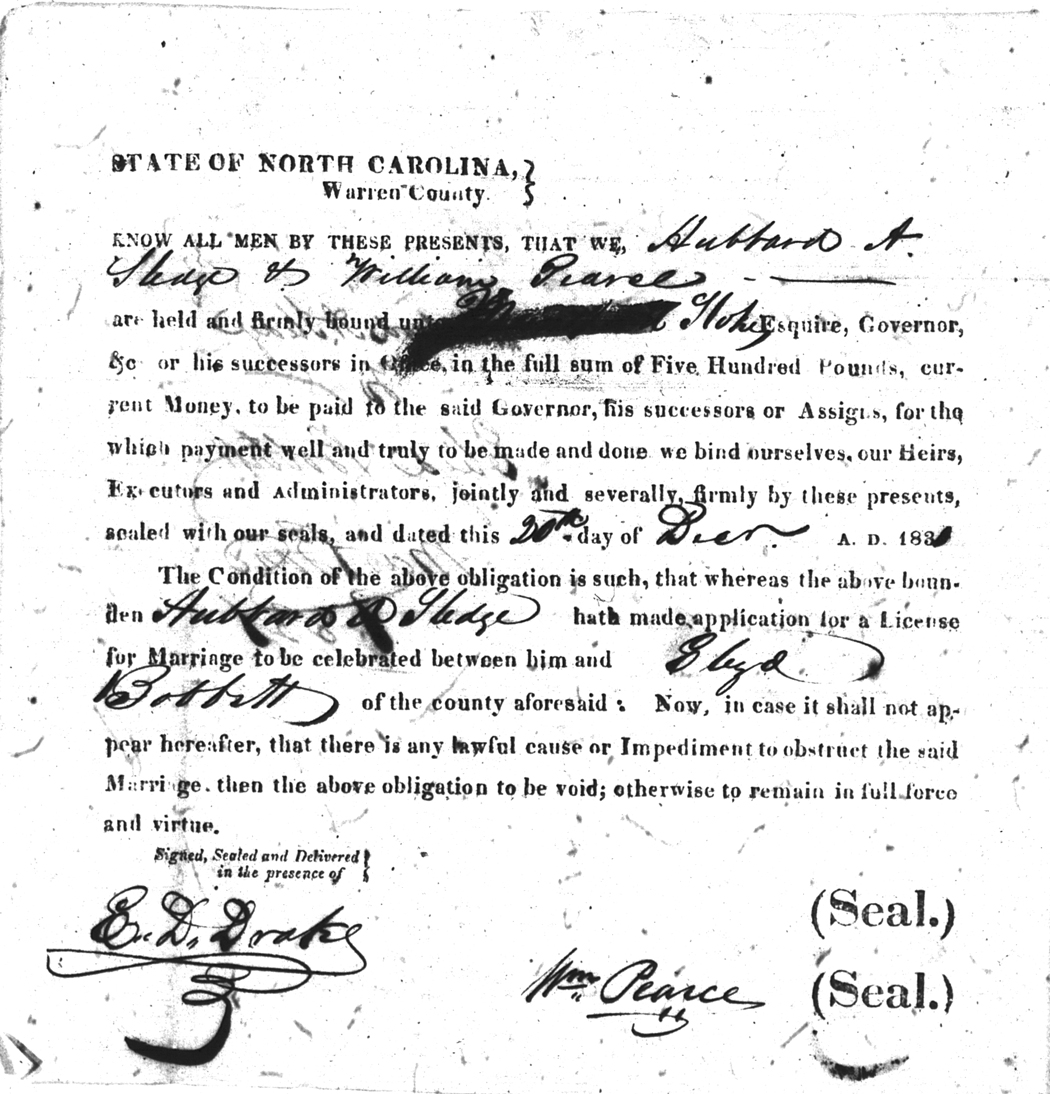 STATE OF NORTH CAROLINA,
Warren County.
KNOW ALL MEN BY THESE PRESENTS, THAT WE, Hubbard A.
Sledge & William Pearse
are held and firmly bound unto Stokes Esquire, Governor,
&c or his successors in Office, in the full sum of Five Hundred Pounds, cur-
rent Money, to be paid to the said Governor, his successors or Assigns, for the
which payment well and truly to be made and done we bind ourselves, our Heirs,
Executors and Administrators, jointly and severally, firmly by these presents,
sealed with our seals, and dated this 20th day of Decr. A. D. 183
The Condition of the above obligation is such, that whereas the above boun-
den Hubbard A Sledge hath made application for a License
for Marriage to be celebrated between him and
Bobbett of the county aforesaid : Now, in case it shall not ap-
pear hereafter, that there is any lawful cause or Impediment to obstruct the said
Marriage, then the above obligation to be void; otherwise to remain in full force
and virtue.
Signed, Sealed and Delivered
in the presence of
E. D. Drake
(Seal.)
Wm. Pearce (Seal.)